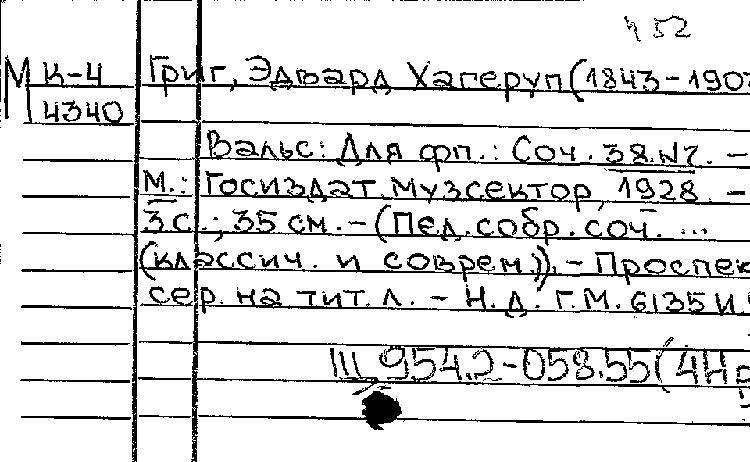 452
М К-4 Григ, Эдвард Хагеруп (1843-1907
4340
Вальс: Для фп.: Соч. 38. №7. –
М.: Госиздат. Музсектор, 1928. –
3 с.; 35 см. – (Пед. собр. соч. ...
(классич. и соврем.)). – Проспек
сер. на тит. л. – Н. д. Г.М. 6135 И
Ш 954.2-058.55(4Н